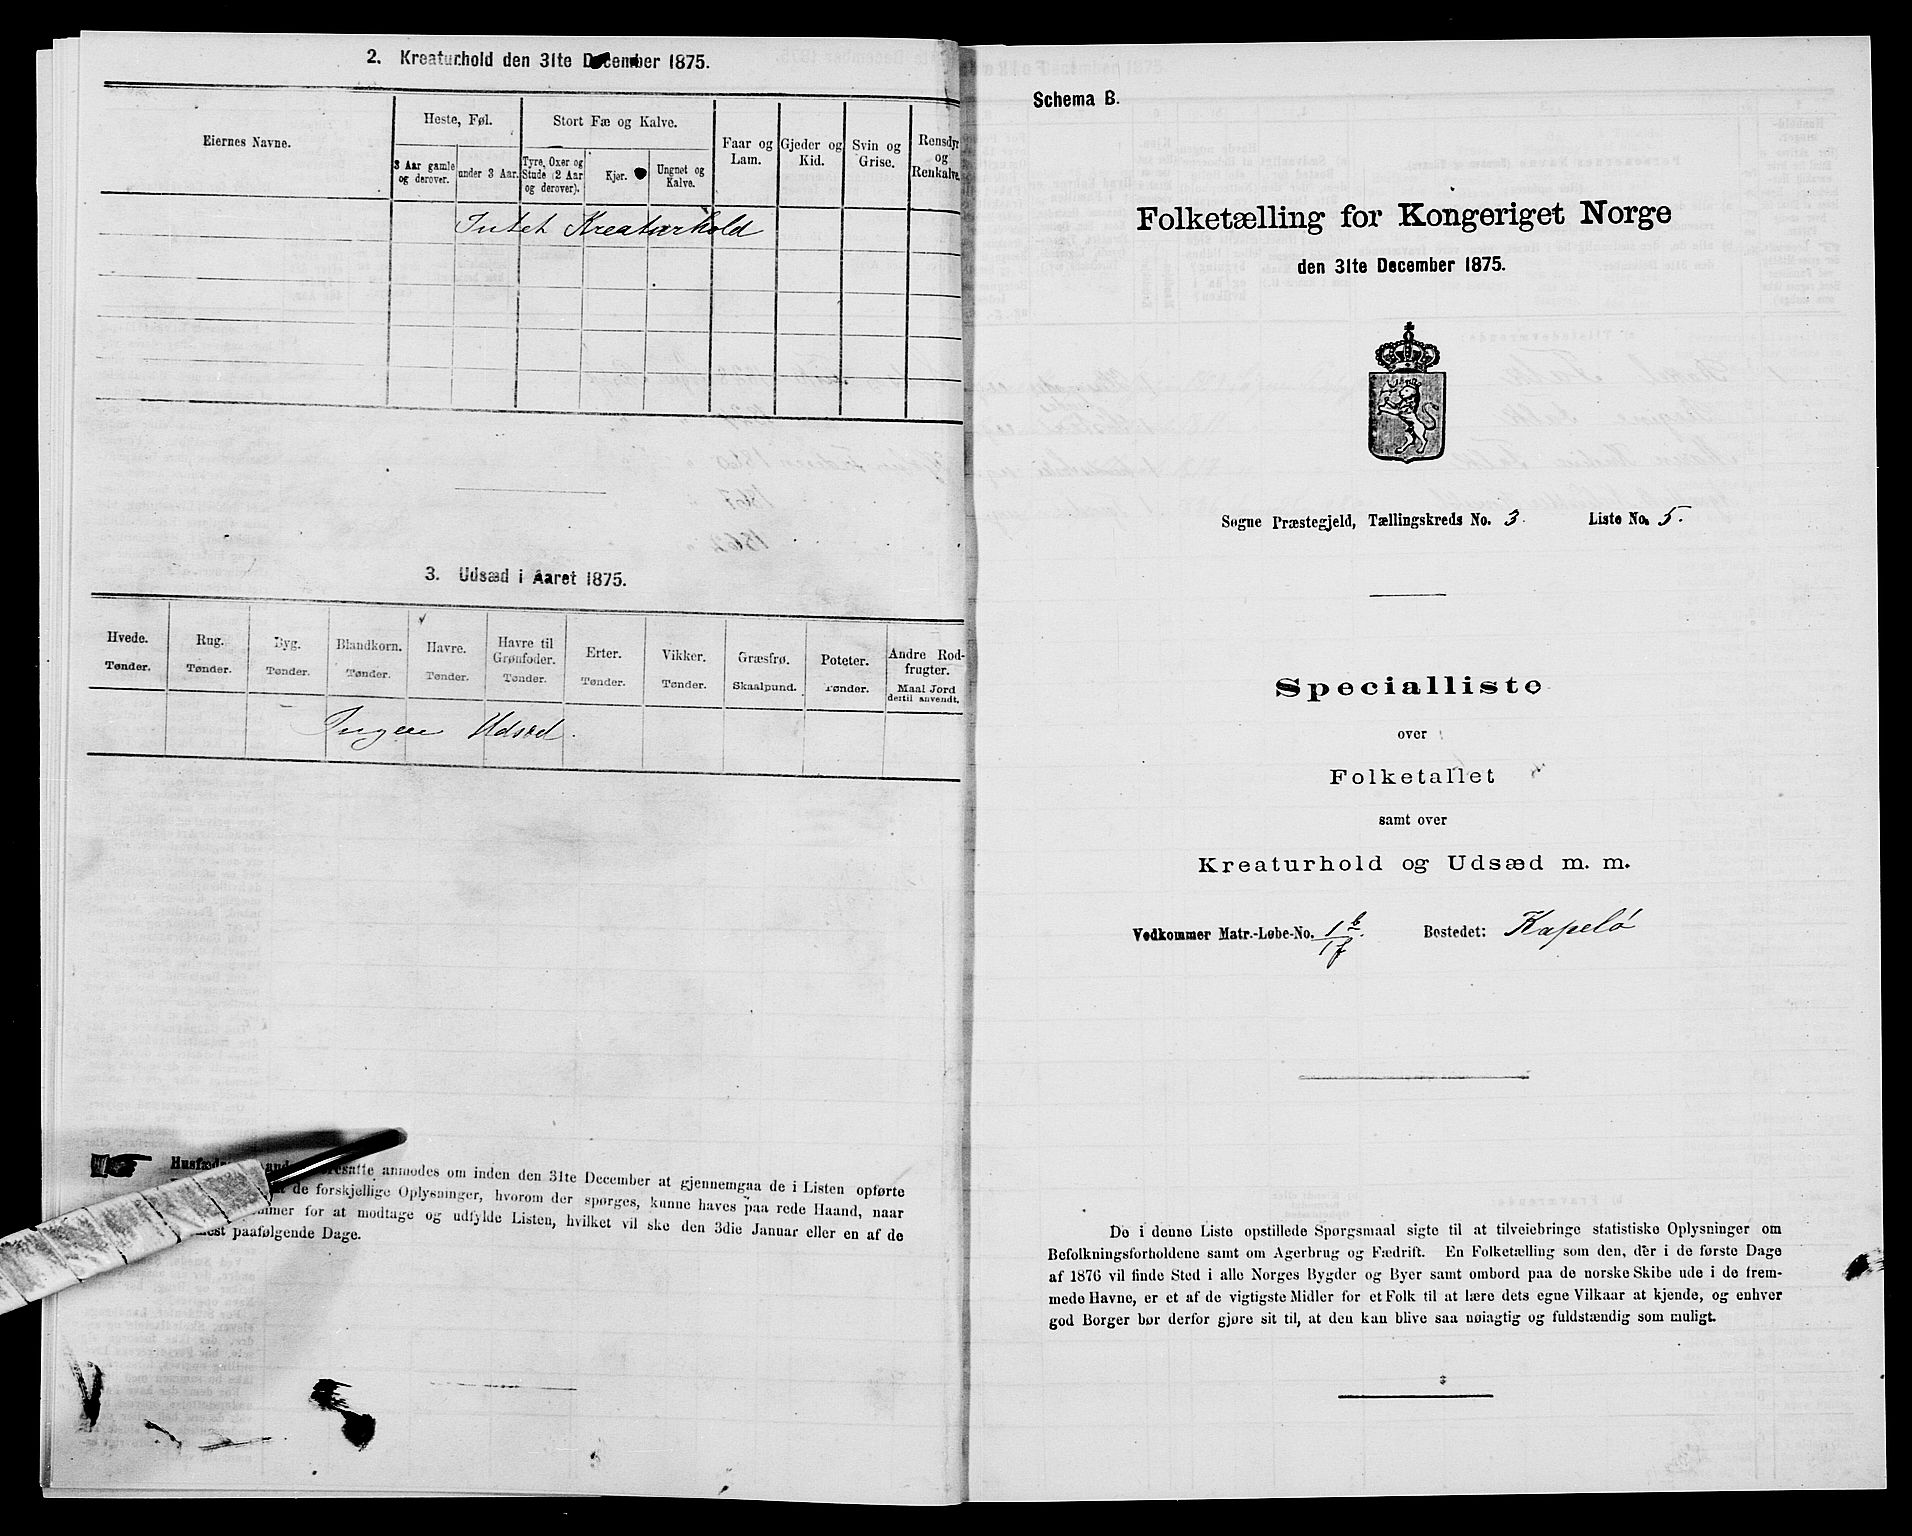 2. Kreaturhold den 31te December 1875.
Eiernes Navne.
Heste, Føl.
Stort Fæ og Kalve.
Faar og Lam.
Gjeder og Kid.
Svin og Grise.
Rensdyr og Renkalve.
3 Aar gamle og derover.
under 3 Aar.
Tyre, Oxer og Stude (2 Aar og derover).
Kjør.
Ungnet og Kalve.
Intet Kreaturhold
3. Udsæd i Aaret 1875.
Hvede. Tønder.
Rug. Tønder.
Byg. Tønder.
Blandkorn. Tønder.
Havre. Tønder.
Havre til Grønfoder. Tønder.
Erter. Tønder.
Vikker. Tønder.
Græsfrø. Skaalpund.
Poteter. Tønder.
Andre Rodfrugter. Maal Jord dertil anvendt.
Ingen Udsæd.
anmodes om inden den 31te December at gjennemgaa de i Listen opførte
de forskjellige Oplysninger, hvorom der spørges, kunne haves paa rede Haand, naar
for at modtage og udfylde Listen, hvilket vil ske den 3die Januar eller en af de
paafølgende Dage.
Schema B.
Folketælling for Kongeriget Norge
den 31te December 1875.
Sogne Præstegjeld, Tællingskreds No. 3. Liste No. 5.
Specialliste
over
Folketallet
samt over
Kreaturhold og Udsæd m. m.
Vedkommer Matr.-Løbe-No. 1b/1f. Bostedet: Kapelø
De i denne Liste opstillede Spørgsmaal sigte til at tilveiebringe statistiske Oplysninger om
Befolkningsforholdene samt om Agerbrug og Fædrift. En Folketælling som den, der i de første Dage
af 1876 vil finde Sted i alle Norges Bygder og Byer samt ombord paa de norske Skibe ude i de frem-
mede Havne, er et af de vigtigste Midler for et Folk til at lære dets egne Vilkaar at kjende, og enhver
god Borger bør derfor gjøre sit til, at den kan blive saa nøiagtig og fuldstændig som muligt.